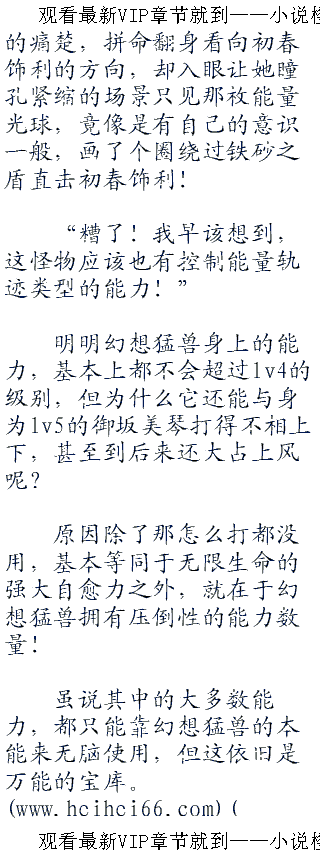 观看最新VIP章节就到——小说检
的痛楚，拼命翻身看向初春
饰利的方向，却入眼让她瞳
孔紧缩的场景只见那枚能量
光球，竟像是有自己的意识
一般，画了个圈绕过铁砂之
盾直击初春饰利！
“糟了！我早该想到，
这怪物应该也有控制能量轨
迹类型的能力！”
明明幻想猛兽身上的能
力，基本上都不会超过lv4的
级别，但为什么它还能与身
为lv5的御坂美琴打得不相上
下，甚至到后来还大占上风
呢？
原因除了那怎么打都没
用，基本等同于无限生命的
强大自愈力之外，就在于幻
想猛兽拥有压倒性的能力数
量！
虽说其中的大多数能
力，都只能靠幻想猛兽的本
能来无脑使用，但这依旧是
万能的宝库。
(www.hcihci66.com)(
观看最新VIP章节就到——小说检